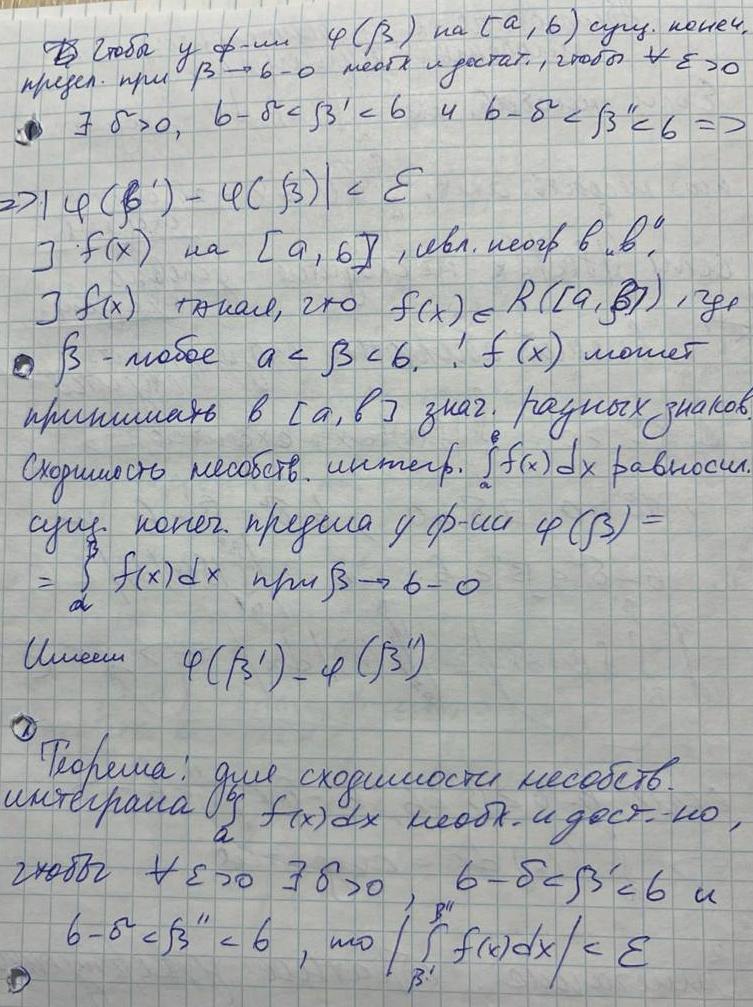 Чтобы у ф-ии φ(β) на [a, b) сущ. конеч.
предел. при β → b-0 необх и достат., чтобы ∀ ε>0
∃ δ>0, b-δ < β' < b и b-δ < β'' < b =>
=> | φ(β') - φ(β)| < ε
] f(x) на [a, b], явл. неогр в "b".
] f(x) такая, что f(x) ∈ R([a, β]), где
β - любое a < β < b. ! f(x) может
принимать в [a, b] знач. разных знаков.
Сходимость несобств. интегр. ∫ₐᵇ f(x)dx равносил.
сущ. конеч. предела у ф-ии φ(β) =
= ∫ₐᵝ f(x)dx при β → b-0
Имеем φ(β') - φ(β'')
Теорема: для сходимости несобств.
интеграла ∫ₐᵇ f(x)dx необх. и дост.-но,
чтобы ∀ ε>0 ∃ δ>0, b-δ < β' < b и
b-δ < β'' < b, то | ∫_β'^β'' f(x)dx | < ε